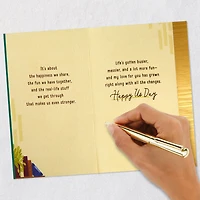 It's about
the happiness we share,
the fun we have together,
and the real-life stuff
we get through
that makes us even stronger.
Life's gotten busier,
messier, and a lot more fun–
and my love for you has grown
right along with all the changes.
Happy Us Day